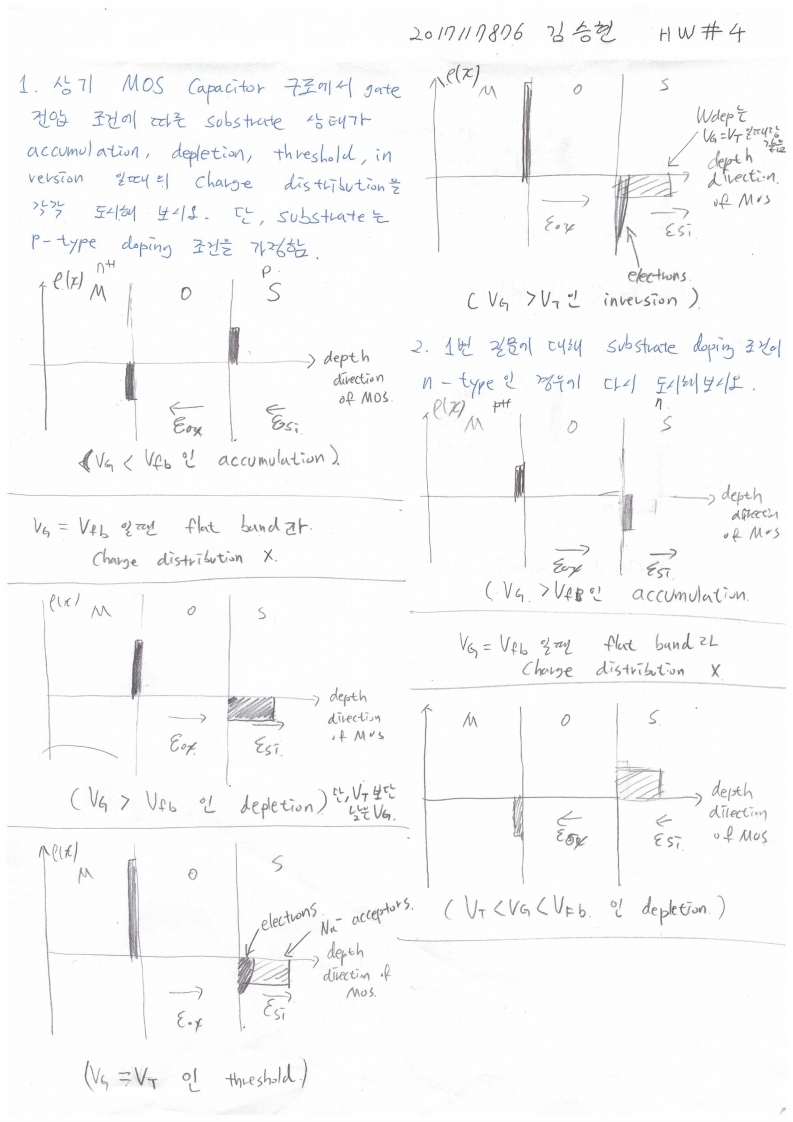 2017117876 김승현 HW#4
1. 상기 MOS Capacitor 구조에서 gate
전압 조건에 따른 substrate 상태가
accumulation, depletion, threshold, in
version 일때의 Charge distribution을
각각 도시해 보시오. 단, substrate는
P-type doping 조건을 가정함.
ρ(x) n++ M O p S
depth
direction
of MOS.
Ɛox Ɛsi
(VG < Vfb 인 accumulation).
VG = Vfb 일땐 flat band라.
Charge distribution X.
ρ(x) M O S
depth
direction
of MOS
Ɛox Ɛsi.
(VG > Vfb 인 depletion) 단, VT 보단
낮은 VG.
ρ(x) M O S
electrons. Na⁻ acceptors.
depth
direction of
MOS.
Ɛox Ɛsi
(VG = VT 인 threshold.)
ρ(x) M O S
Wdep는
VG=VT 일때랑
같음
depth
direction.
of MOS
Ɛox Ɛsi
electrons.
(VG > VT 인 inversion).
2. 1번 질문에 대해 substrate doping 조건이
n-type 인 경우에 다시 도시해보시오.
ρ(x) M p++ O n S
depth
direction
of MOS
Ɛox Ɛsi
(VG > Vfb인 accumulation.
VG = Vfb 일땐 flat band라
Charge distribution X
M O S.
depth
direction
of MOS
Ɛox Ɛsi.
(VT < VG < VFb. 인 depletion.)